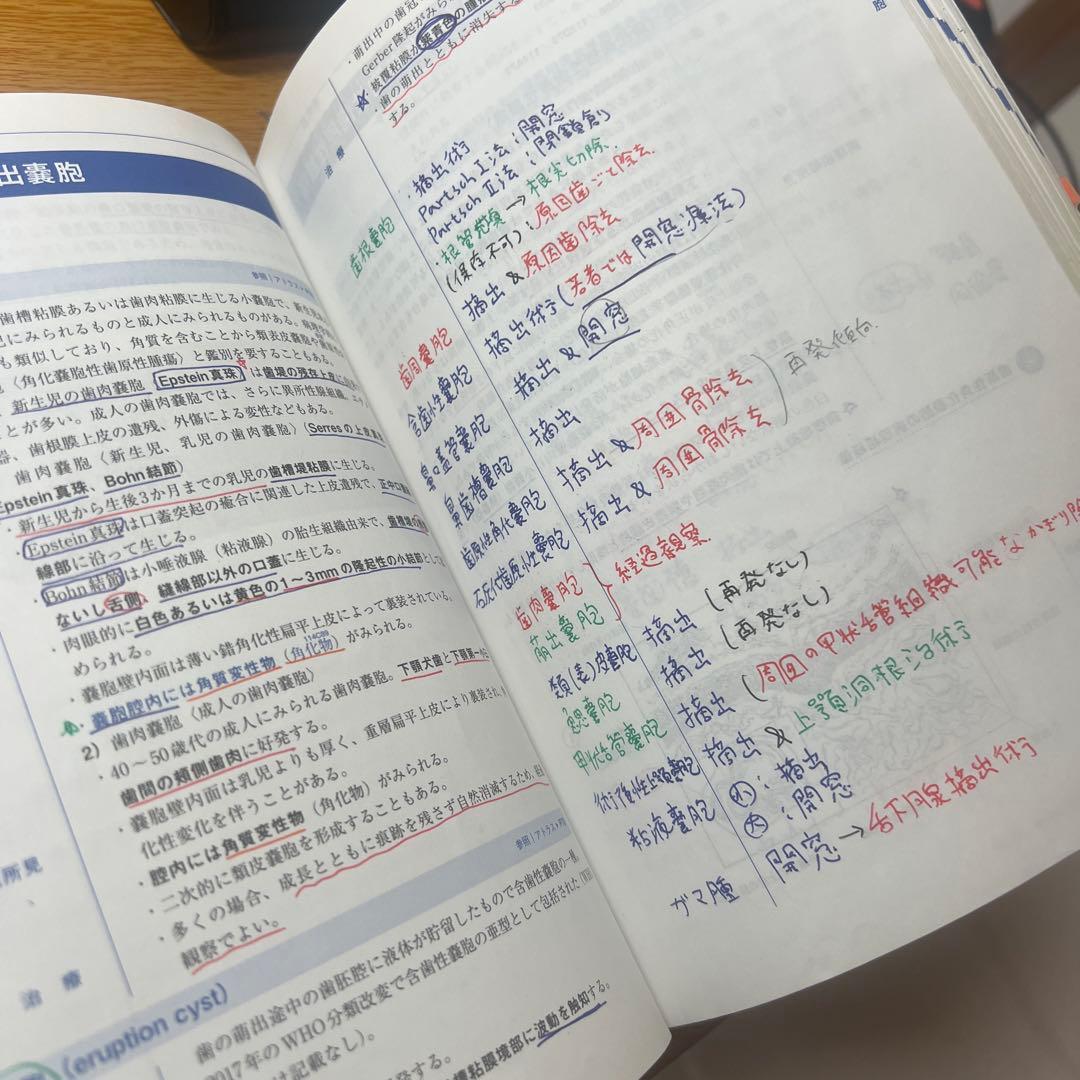 出嚢胞
参照｜アトラス
歯槽粘膜あるいは歯肉粘膜に生じる小嚢胞で、新生児
にみられるものと成人にみられるものがある。
も類似しており、角質を含むことから類表皮嚢胞や
〈角化嚢胞性歯原性腫瘍〉と鑑別を要することもある。
新生児の歯肉嚢胞（Epstein真珠）は歯堤の残存上皮
とが多い。成人の歯肉嚢胞では、さらに異所性腺組織、
器、歯根膜上皮の遺残、外傷による変性などもある。
歯肉嚢胞〈新生児、乳児の歯肉嚢胞〉（Serresの上皮
Epstein真珠、Bohn結節）
新生児から生後3か月までの乳児の歯槽堤粘膜に生じる。
・Epstein真珠は口蓋突起の癒合に関連した上皮遺残で、正中口蓋
線部に沿って生じる。
・Bohn結節は小唾液腺（粘液腺）の胎生組織由来で、歯槽堤の
ないし舌側、縫線部以外の口蓋に生じる。
・肉眼的に白色あるいは黄色の1〜3mmの隆起性の小結節として
められる。
・嚢胞壁内面は薄い錯角化性扁平上皮によって裏装されている。
114C89
・嚢胞腔内には角質変性物（角化物）がみられる。
2）歯肉嚢胞〈成人の歯肉嚢胞〉
・40〜50歳代の成人にみられる歯肉嚢胞。下顎犬歯と下顎第一小
歯間の頬側歯肉に好発する。
・嚢胞壁内面は乳児よりも厚く、重層扁平上皮により裏装され、
化性変化を伴うことがある。
・腔内には角質変性物（角化物）がみられる。
・二次的に類皮嚢胞を形成することもある。
・多くの場合、成長とともに痕跡を残さず自然消滅するため、経過
観察でよい。
所見
治療
参照｜アトラス
（eruption cyst）
歯の萌出途中の歯胚腔に液体が貯留したもので含歯性嚢胞の一種。
2017年のWHO分類改変で含歯性嚢胞の亜型として包括された
は記載なし）。
発する。
槽粘膜境部に波動を触知する。
・萌出中の歯冠
Gerber隆起がみら
☆・被覆粘膜が紫青色の腫
・歯の萌出とともに消失
する。
治療
・摘出術
Partsch Ⅰ法：開窓
Partsch Ⅱ法：閉鎖創
歯根嚢胞 ・根管充填→根尖切除
(保存不可)：原因歯ごと除去
歯周嚢胞 摘出 & 原因歯除去
含歯性嚢胞 摘出術(若者では開窓療法)
鼻口蓋管嚢胞 摘出 & 開窓
鼻歯槽嚢胞 摘出
歯原性角化嚢胞 摘出 & 周囲骨除去
石灰化歯原性嚢胞 摘出 & 周囲骨除去
再発傾向
歯肉嚢胞
萌出嚢胞
経過観察
類(表)皮嚢胞 摘出 (再発なし)
鰓嚢胞 摘出 (再発なし)
甲状舌管嚢胞 摘出 (周囲の甲状舌管組織可能なかぎり除
術後性上顎嚢胞 摘出 & 上顎洞根治術
粘液嚢胞 小：摘出
大：開窓
ガマ腫 開窓→舌下腺摘出術